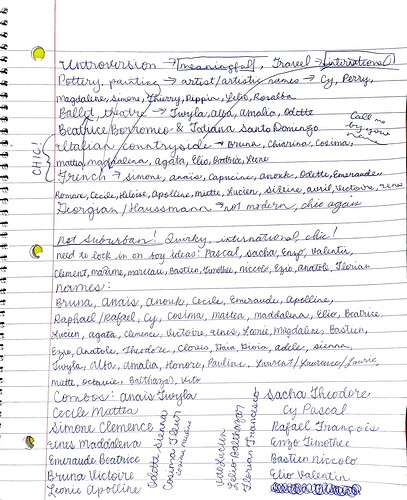 Introversion → meaningful, Travel → international
Pottery, painting → artist/artistic names → Cy, Perry,
Magdaline, Simone, Thierry, Pippin, Lelio, Rosalba
Ballet, theatre → Twyla, Alba, Amalia, Odette
Beatrice Borromeo & Tatiana Santo Domingo
Call me by your name
CHIC!
Italian countryside → Bruna, Chiarina, Cosima,
Mattea, Maddalena, Agata, Elio, Beatrice, Irene
French → Simone, Anais, Capucine, Anouk, Odette, Emeraude
Romane, Cecile, Heloise, Apolline, Miette, Lucien, Silene, Avril, Victoire, Ines
Georgian/Haussmann → not modern, chic again
Not suburban! Quirky, international, chic!
need to lock in on boy ideas: Pascal, Sacha, Enzo, Valentin,
Clement, Maxime, Marceau, Bastien, Timothee, Niccolo, Ezio, Anatole, Florian
names:
Bruna, Anais, Anouk, Cecile, Emeraude, Apolline,
Raphael/Rafael, Cy, Cosima, Mattea, Maddalena, Elio, Beatrice
Lucien, Agata, Clemence, Victoire, Ines, Leonie, Magdaline, Bastien,
Ezio, Anatole, Theodore, Clovis, Gaia, Gioia, Adele, Sienna,
Twyla, Alba, Amalia, Honore, Pauline, Laurent/Laurence/Laurie
Miette, Octavie, Balthazar, Vito
Combos: Anais Twyla
Cecile Mattea
Simone Clemence
Ines Maddalena
Emeraude Beatrice
Bruna Victoire
Leonie Apolline
Odette Sienna
Cosima Fleur
Lelio Balthazar
Florian Francesco
Sacha Theodore
Cy Pascal
Rafael François
Enzo Timothee
Bastien Niccolo
Elio Valentin